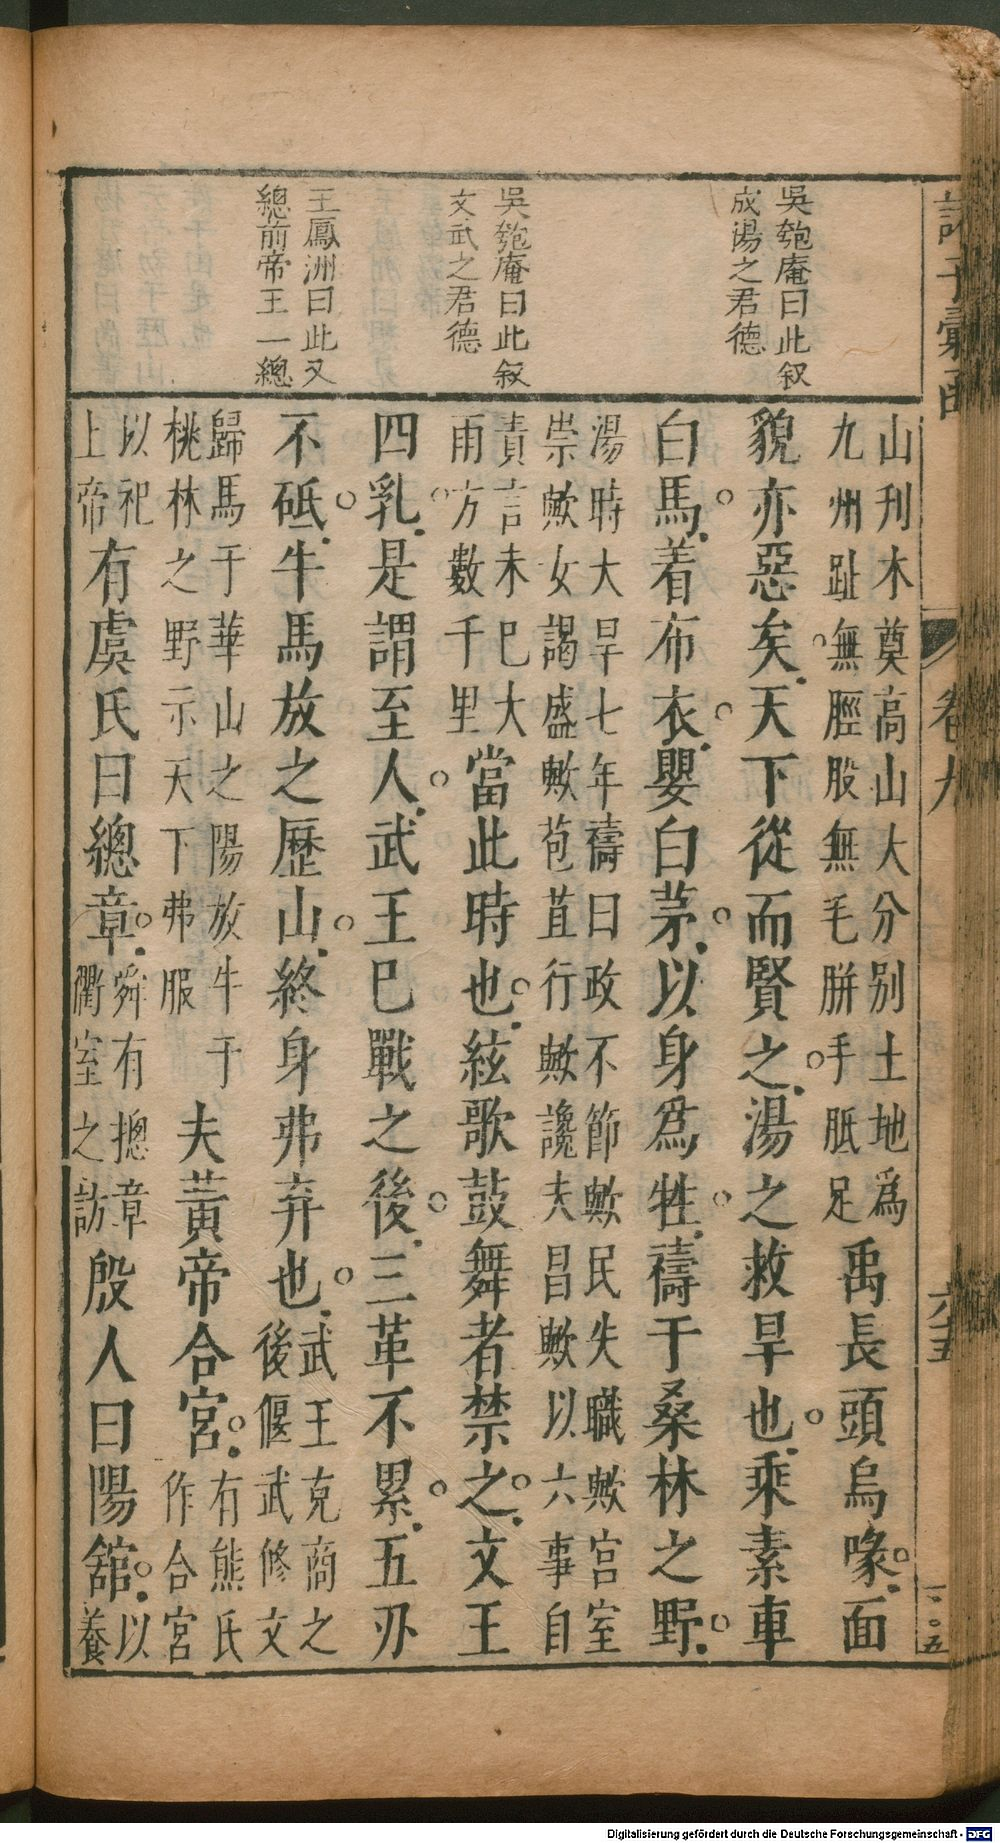 吳匏庵曰此叙
成湯之君德
吳匏庵曰此叙
文武之君德
王鳳洲曰此又
總前帝王一總
山刋木奠高山大分别土地爲
九州趾無脛股無毛胼手胝足
禹長頭烏喙面
貌亦惡矣天下從而賢之湯之救旱也乘素車
白馬着布衣嬰白茅以身爲牲禱于桑林之野
湯時大旱七年禱曰政不節歟民失職歟宫室
崇歟女謁盛歟苞苴行歟讒夫昌歟以六事自
責言未巳大
雨方數千里
當此時也絃歌鼓舞者禁之文王
四乳是謂至人武王巳戰之後三革不累五刅
不砥牛馬放之歷山終身弗弃也
武王克商之
後偃武修文
歸馬于華山之陽放牛于
桃林之野示天下弗服
夫黃帝合宮
有熊氏
作合宮
以祀
上帝
有虞氏曰總章
舜有摠章
衢室之訪
殷人曰陽舘
以
養
諸子彙函
卷九
六十五
一〇五
Digitalisierung gefördert durch die Deutsche Forschungsgemeinschaft - DFG